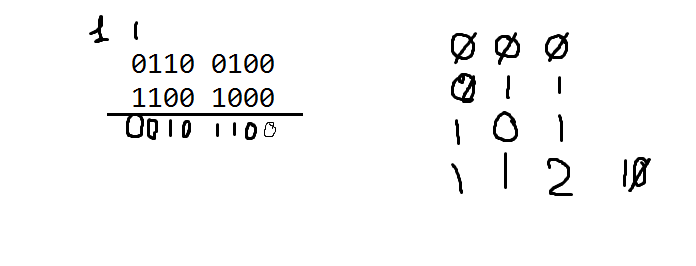 1 1
0110 0100
1100 1000
0010 1100
0 0 0
0 1 1
1 0 1
1 1 2 10